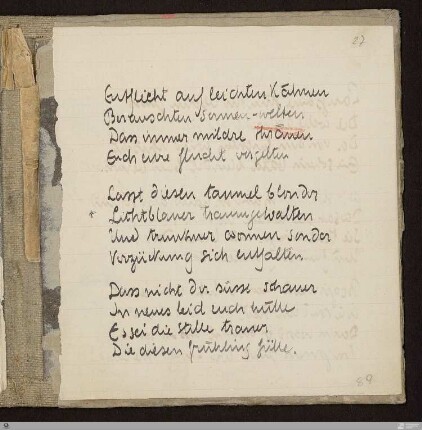 27
Entflieht auf leichten Kähnen
Berauschten sonnen-welten
Dass immer mildre thränen
Euch eure flucht vergelten
Lasst diesen taumel blonder
* Lichtblauer traumgewalten
Und trunkner wonnen sonder
Verzückung sich entfalten
Dass nicht der süsse schauer
In neues leid euch hülle
Es sei die stille trauer
Die diesen frühling fülle.